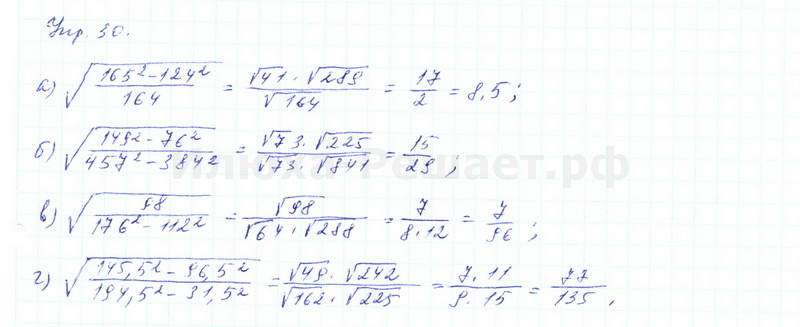 Упр. 30.
а) √(165²-124²/164) = √41·√289/√164 = 17/2 = 8,5;
б) √(149²-76²/457²-384²) = √73·√225/√73·√841 = 15/29;
в) √(98/176²-112²) = √98/√64·√288 = 7/8·12 = 7/96;
г) √(145,5²-96,5²/194,5²-31,5²) = √49·√242/√162·√225 = 7·11/9·15 = 77/135,
Илюха-Решает.рф